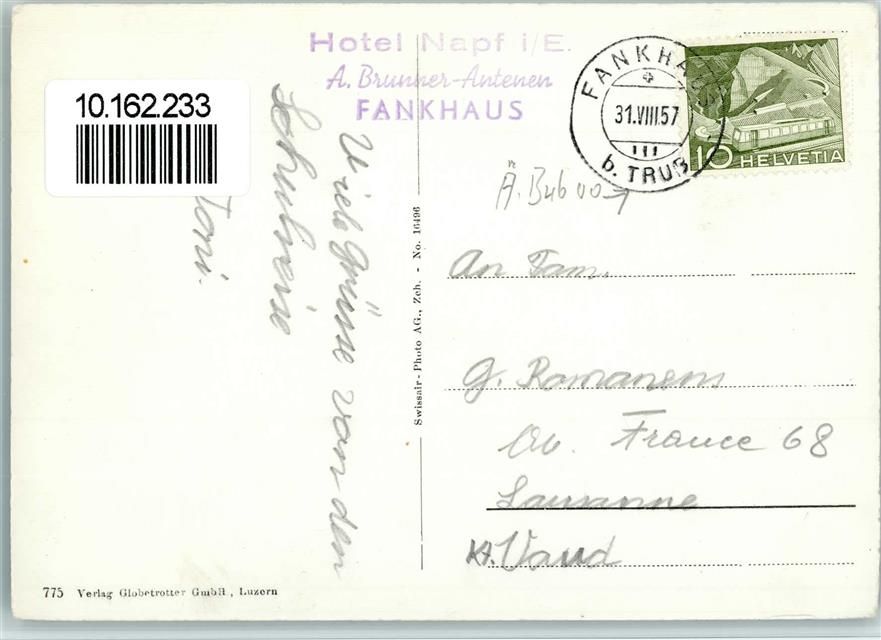 Hotel Napf i/E.
A. Brunner-Antenen
FANKHAUS
10.162.233
FANKHAUS
31.VIII.57
III
b. TRUB
10 HELVETIA
Viele Grüsse von den
Schulreise
Toni.
Swissair-Photo AG., Zch. - No. 16496
An Fam.
G. Romanens
Av. France 68
Lausanne
Kt. Vaud
775 Verlag Globetrotter GmbH., Luzern